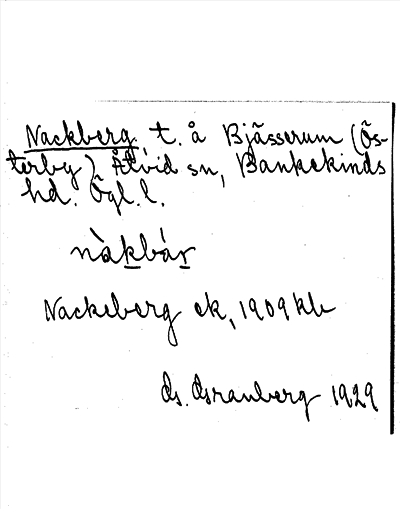 Nackberg, t. å Bjässerum (Ös-
terby), Åtvid sn, Bankekinds
hd. Ögl. l.
nàkbár
Nackeberg ek, 1909 kb
Granberg 1929